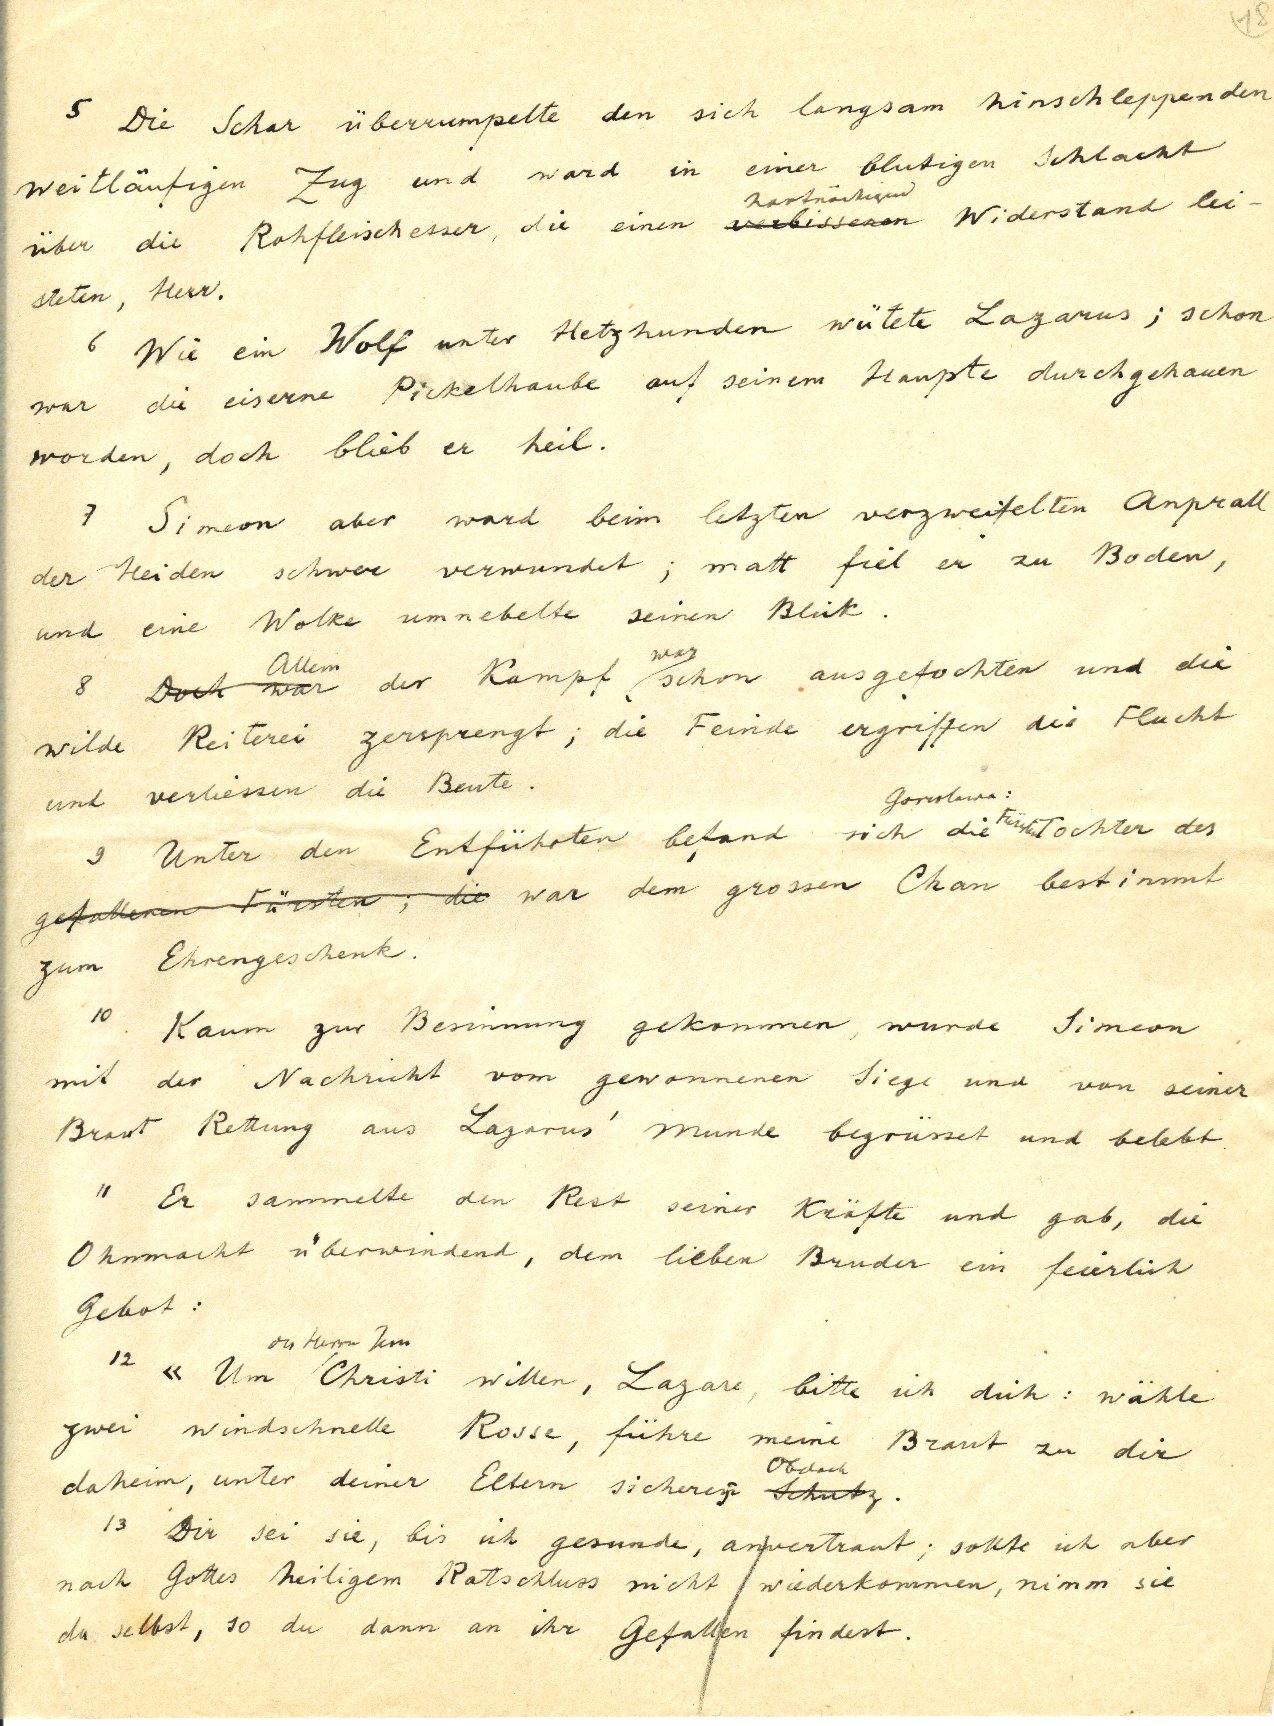 18
5 Die Schar überrumpelte den sich langsam hinschleppenden
weitläufigen Zug und ward in einer blutigen Schlacht
hartnäckigen
über die Rohfleischesser, die einen verbissenen Widerstand lei-
steten, Herr.
6 Wie ein Wolf unter Hetzhunden wütete Lazarus; schon
war die eiserne Pickelhaube auf seinem Haupte durchgehauen
worden, doch blieb er heil.
7 Simeon aber ward beim letzten verzweifelten Anprall
der Heiden schwer verwundet; matt fiel er zu Boden,
und eine Wolke umnebelte seinen Blick.
Allein war
8 Doch war der Kampf schon ausgefochten und die
wilde Reiterei zersprengt; die Feinde ergriffen die Flucht
und verliessen die Beute.
Gorislawa:
9 Unter den Entführten befand sich die Tochter des
gefallenen Fürsten; die war dem grossen Chan bestimmt
zum Ehrengeschenk.
10 Kaum zur Besinnung gekommen, wurde Simeon
mit der Nachricht vom gewonnenen Siege und von seiner
Braut Rettung aus Lazarus' Munde begrüsset und belebt.
11 Er sammelte den Rest seiner Kräfte und gab, die
Ohnmacht überwindend, dem lieben Bruder ein feierlich
Gebot:
des Herrn Jesu
12 « Um Christi willen, Lazare, bitte ich dich: wähle
zwei windschnelle Rosse, führe meine Braut zu dir
Obdach
daheim, unter deiner Eltern sicheres Schutz.
13 Dir sei sie, bis ich gesunde, anvertraut; sollte ich aber
nach Gottes heiligem Ratschluss nicht wiederkommen, nimm sie
du selbst, so du dann an ihr Gefallen findest.